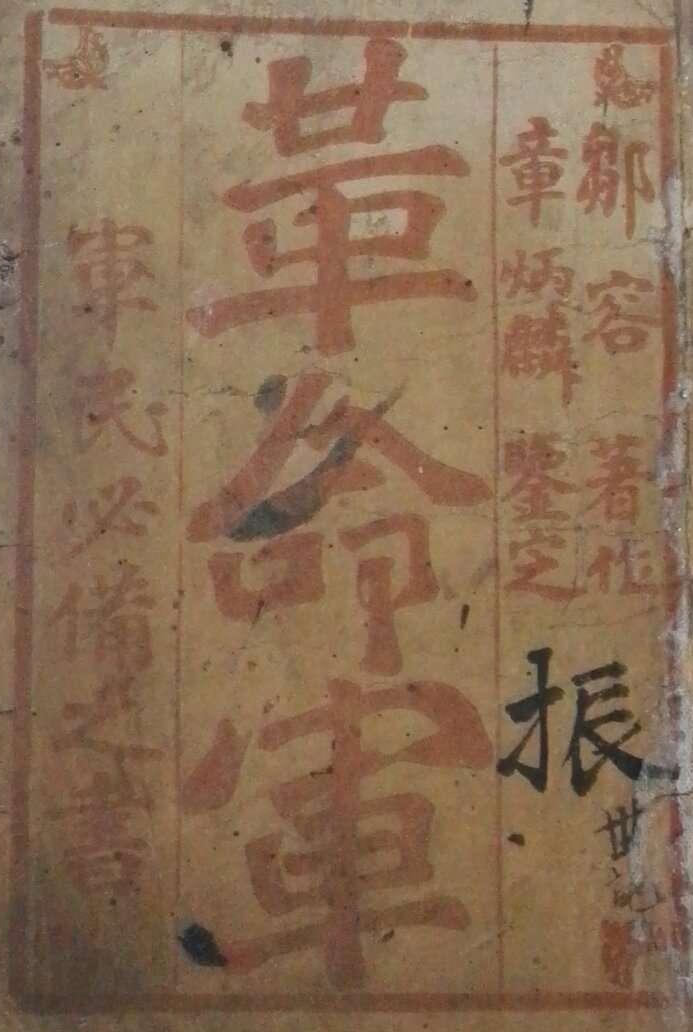 鄒容著作
章炳麟鑒定
革命軍
軍民必備之書
振
世記